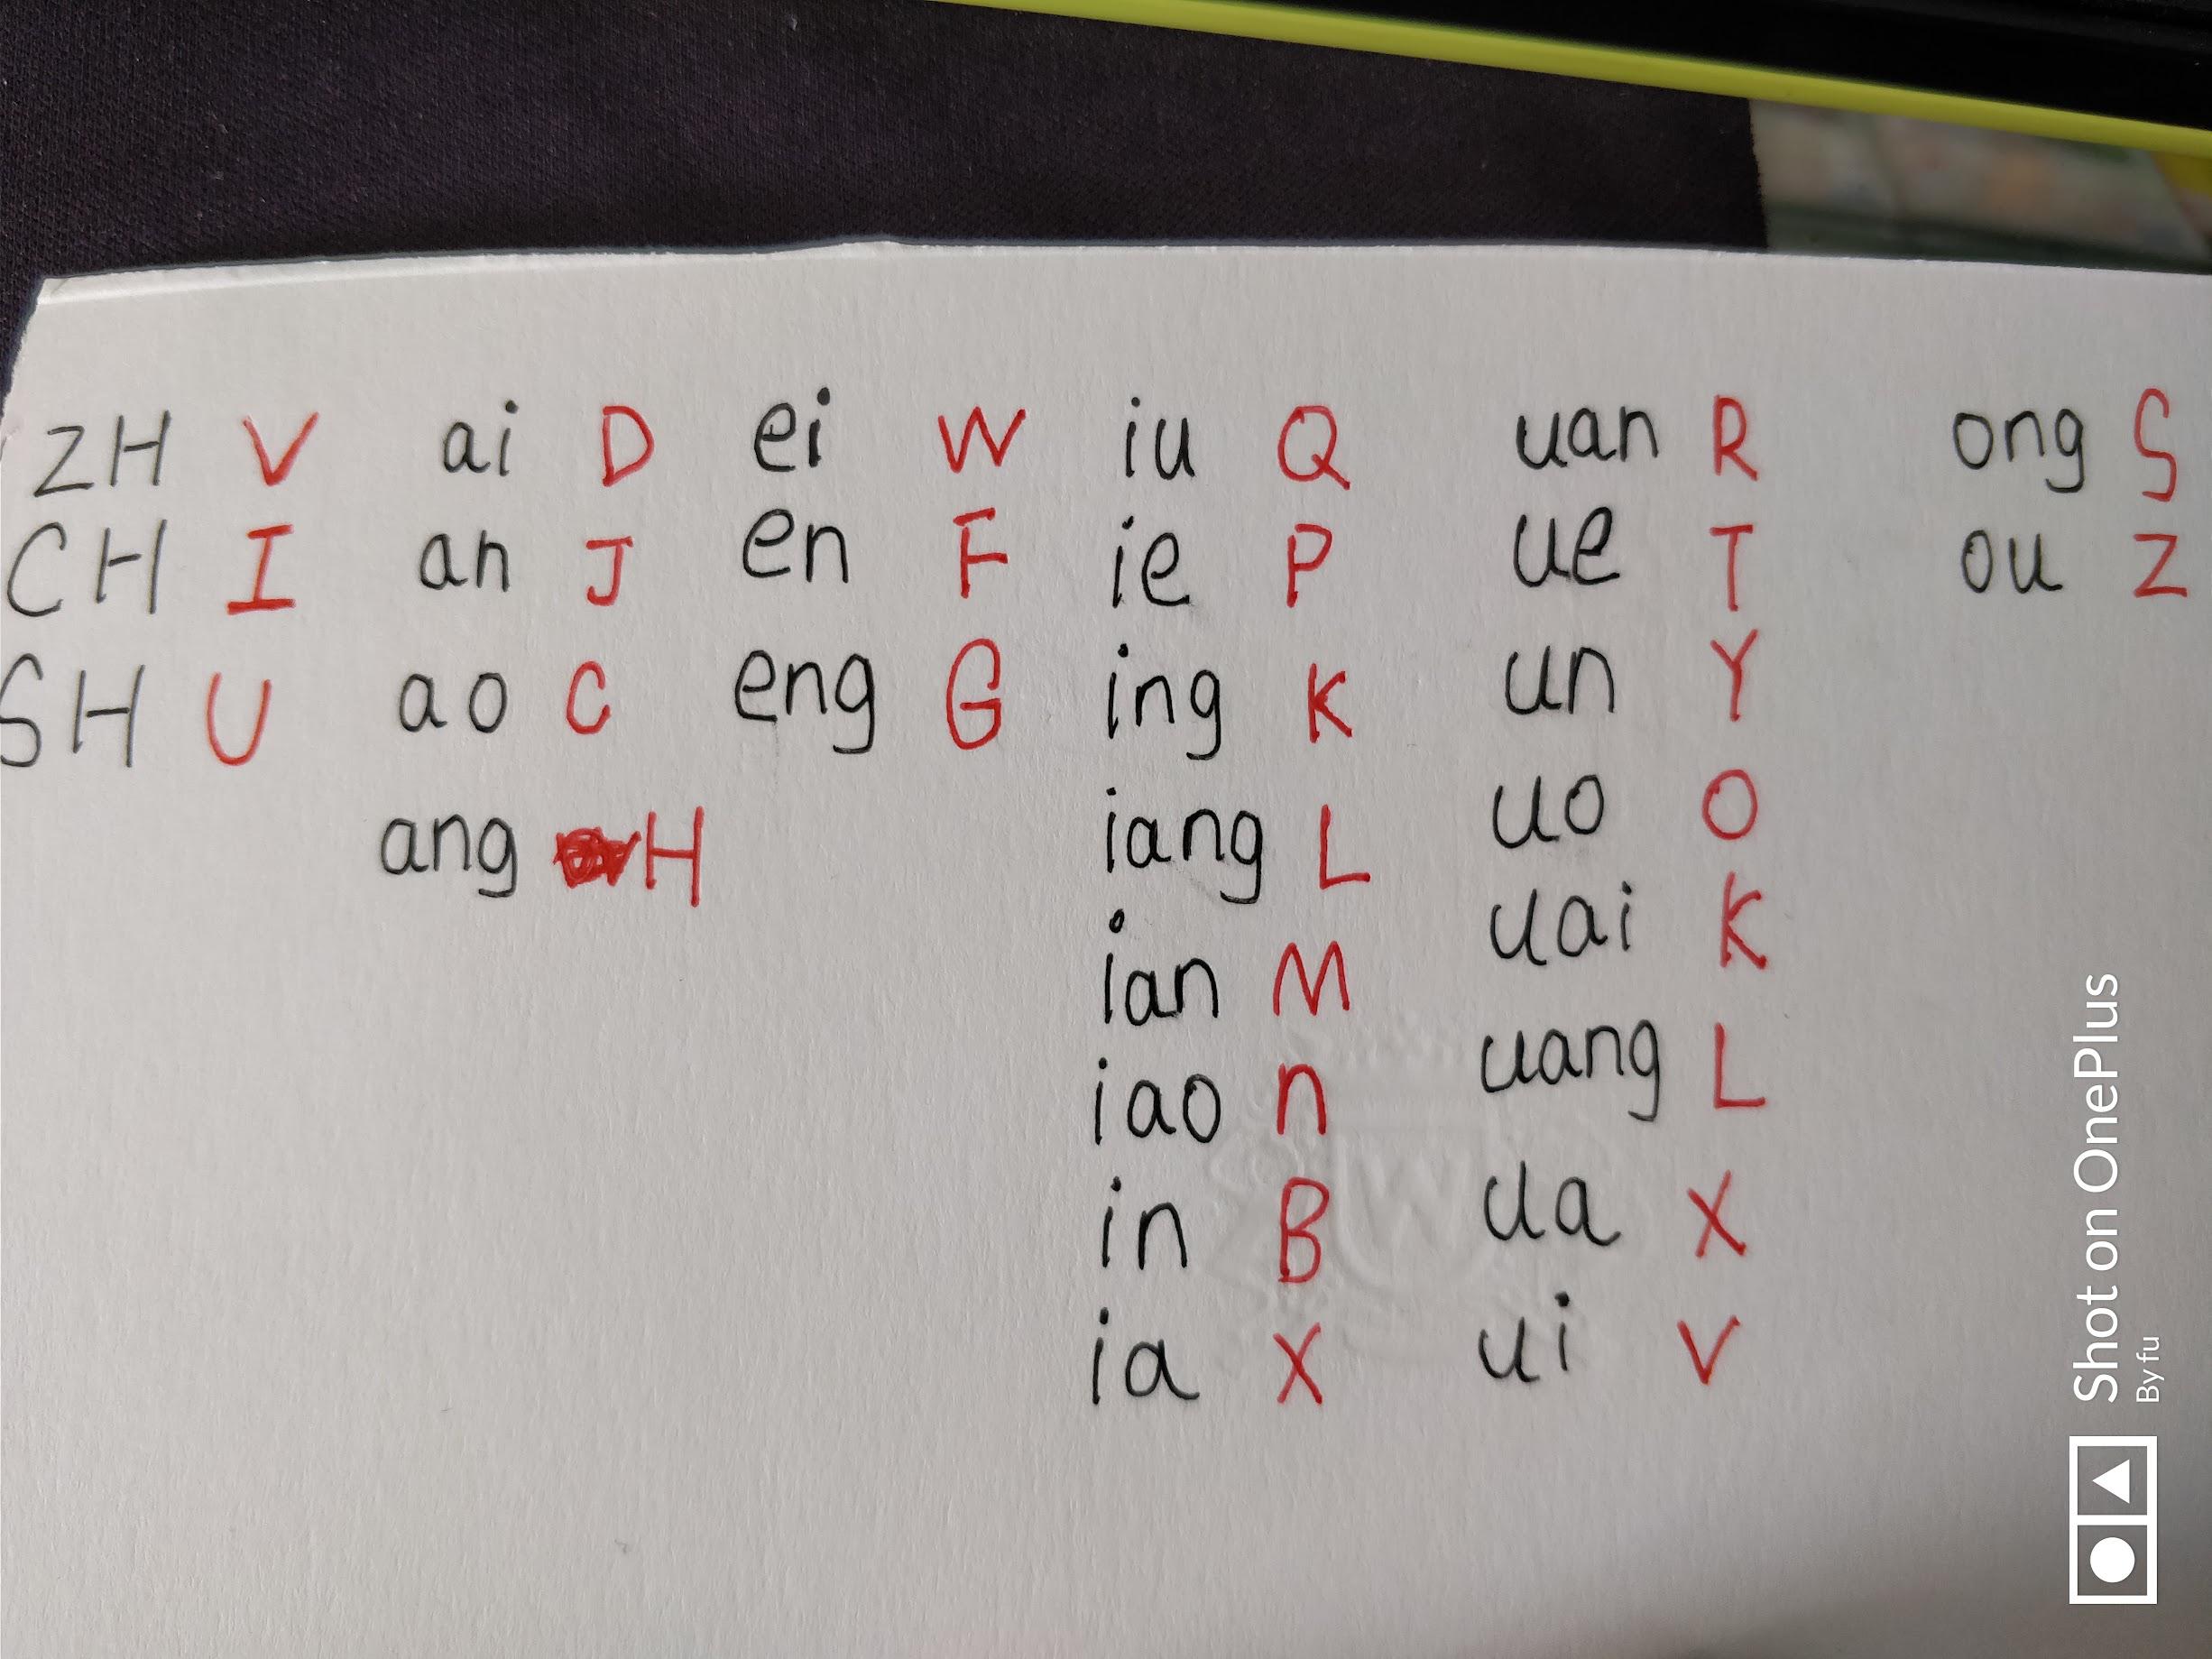 ZH V ai D ei W iu Q uan R ong S
CH I an J en F ie P ue T ou Z
SH U ao C eng G ing K un Y
ang H iang L uo O
ian M uai K
iao n uang L
in B ua X
ia X ui V
Shot on OnePlus
By fu